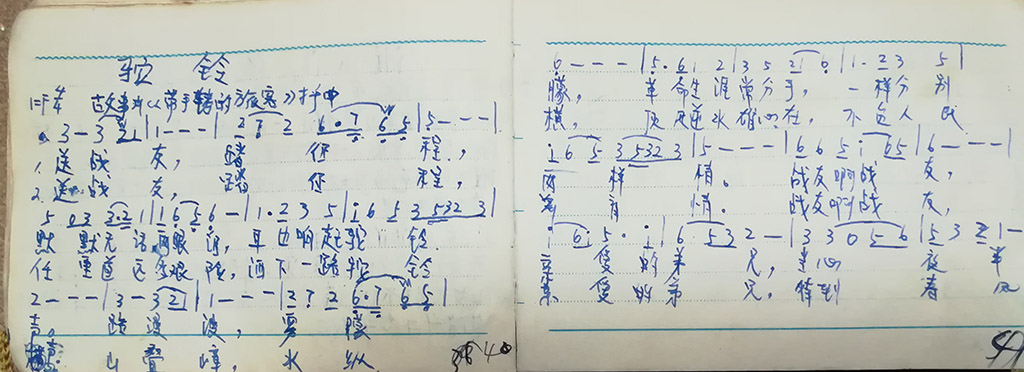 驼 铃
1=F 4/4 故事片《带手铐的旅客》插曲
3 - 3 2 1 | 1 - - - | 2 3 2 6·7 6 5 | 5 - - - |
1. 送战 友, 踏 征 程,
2. 送战 友, 踏 征 程,
5 0 3 3·2 1 | 1 6 5 6 - | 1·2 3 5 | i 6 5 3 532 3 |
默 默无语两眼泪, 耳边响起驼 铃
任重道远多艰险, 洒下一路驼 铃
2 - - - | 3 - 3 2 | 1 - - - | 2 3 2 6·7 6 5 |
声。 路漫 漫, 雾 朦
声。 山叠 嶂, 水 纵
40
6 - - - | 5·6 1 2 | 3 5 2 1 0 | 1·2 3 5 |
朦, 革命生涯常分手, 一样分别
横, 顶风逆水雄心在, 不负人民
i 6 5 3 532 3 | 5 - - - | 6 6 5 i 65 | 6 - - - |
两 样 情。 战友啊战 友,
养 育 情。 战友啊战 友,
i 6 i 5· i | 6· 53 2 - | 3 3 0 5 6 | 5 3 2 1 -
亲 爱的弟 兄, 当心 夜半
亲 爱的弟 兄, 待到 春风